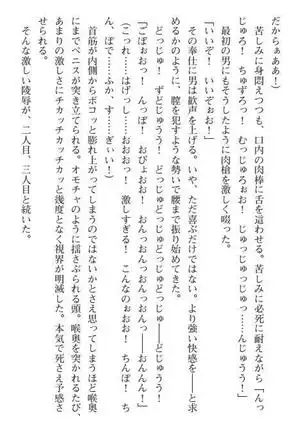 だからぁああ！）
　苦しみに身悶えつつも、口内の肉棒に舌を這わせる。苦しみに必死に耐えながら「んっ
じゅろ！　ちゅずろっ！　むっじゅろぉお！　じゅっじゅっじゅっ……んじゅうう！」
最初の男にもそうしたように肉槍を激しく啜った。
「いいぞ！　いいぞぉお！」
　その奉仕に男は歓声を上げる。いや、ただ喜ぶだけではない。より強い快感を――と求
めるかのように、膣を犯すような勢いで腰まで振り始めてきた。
　どっじゅ！　ずどじゅうう！　どっじゅどっじゅどっじゅどっじゅ――どじゅうう！
「ごぼぉおっ！　んっぽ！　おびょおお！　おんっおんっおんっ――おんんん！」
（こっれ……はげっし……おおおっ！　激しすぎる！　こんなのぉおお！　ちんぽ！　ち
ん、ぽで……ふか、す……ぎぃい！）
　首筋が内側からボコッと膨れ上がってしまうのではないかとさえ思ってしまうほど喉奥
にまでペニスが突き立てられる。オモチャのように揺さぶられる頭。喉奥を突かれるたび、
あまりの激しさにチカッチカッチカッと幾度となく視界が明滅した。本気で死さえ予感さ
せられる。
　そんな激しい陵辱が、二人目、三人目と続いた。